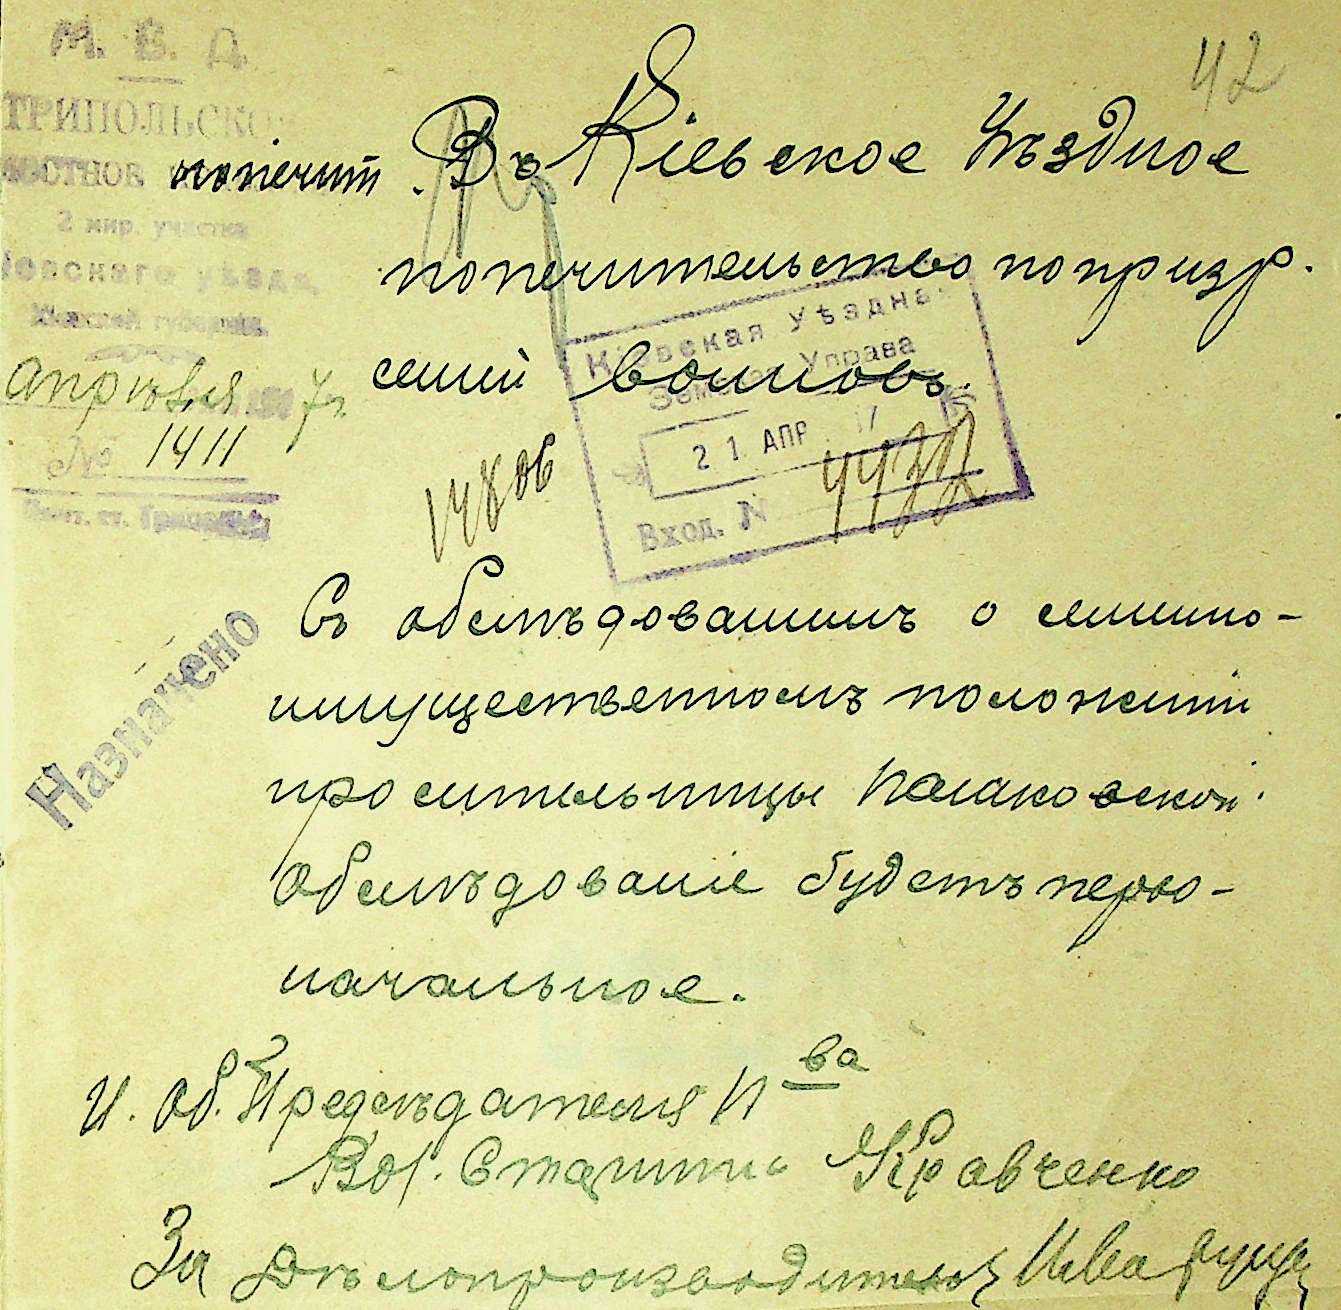 42
М. В. Д.
ТРИПОЛЬСКО
попечит
2 мир. участка
уѣзда,
Кіевской губерніи.
Апрѣля 7 г.
№ 1411
Почт. ст. Триполье
Въ Кіевское Уѣздное
попечительство по призр.
семей воиновъ.
Кіевская Уѣздная
Земская Управа
21 АПР 17
Вход. №
Назначено
Съ обслѣдованіемъ о семейно-
имущественномъ положеніи
просительницы
Обслѣдованіе будетъ перво-
начальное.
И. об. Предсѣдателя П-ва
Вол. Старшина Кравченко
За Дѣлопроизводителя